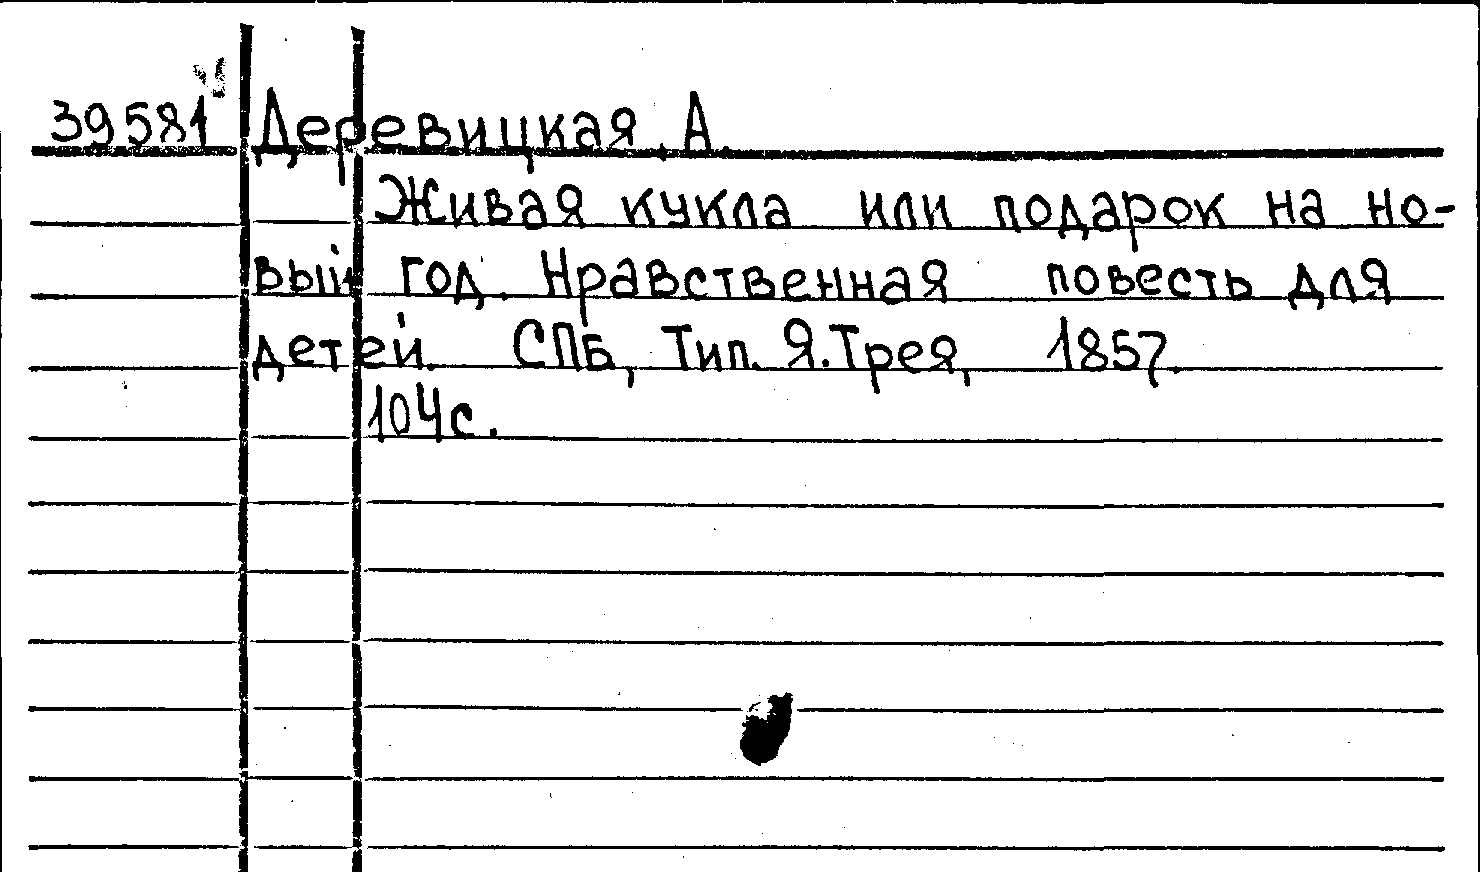 39581 Деревицкая, А.
Живая кукла или подарок на но-
вый год. Нравственная повесть для
детей. СПБ, Тип. Я.Трея, 1857.
104с.